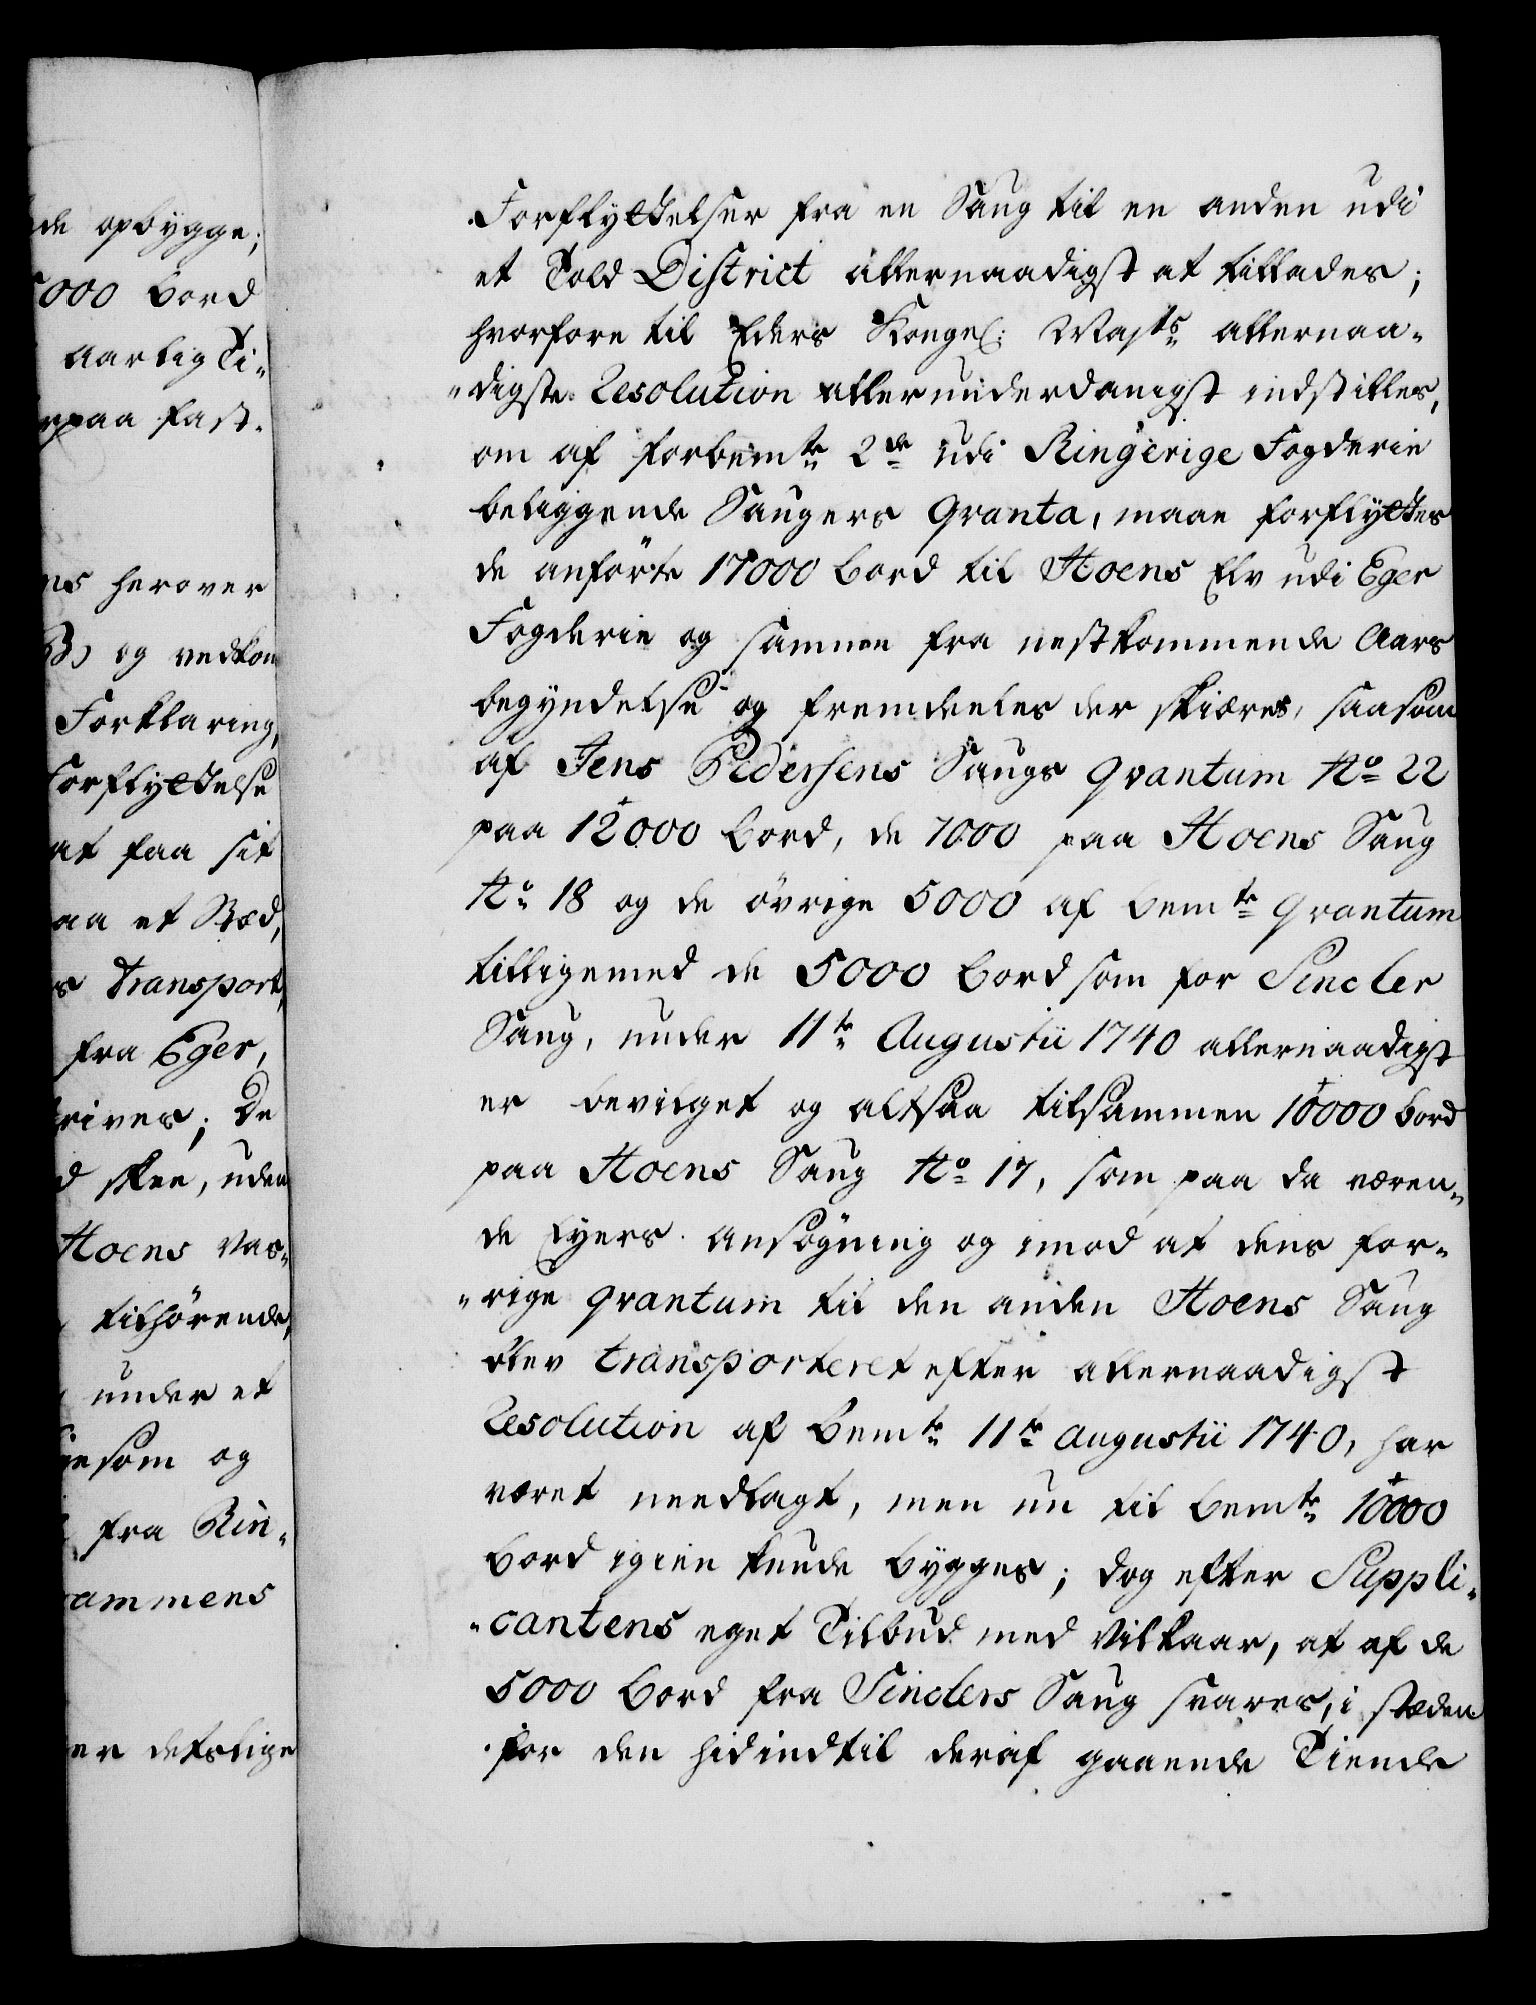 de opbygge;
000 Bord
aarlig Ti-
paa fast-
ns herover
B) og vedkom
Forklaring,
Forflyttelse
at faa sit
aa et Stæd,
s transport,
fra Eger,
rives; De
d skee, uden
Hoens Vas-
tilhörende,
under et
som og
fra Rin-
rammens
er deslige
Forflyttelser fra en Saug til en anden udi
et Told District allernaadigst at tillades;
hvorfore til Eders Kongel: Majts allernaa-
digste Resolution allerunderdanigst indstilles,
om af forbemte 2de udi Ringerige Fogderie
beliggende Saugers Qvanta, maae forflyttes
de anförte 17000 Bord til Hoens Elv udi Eger
Fogderie og samme fra nestkommende Aars
begyndelse og fremdeeles der skiæres, saasom
af Jens Pedersens Saugs Qvantum No 22
paa 12000 Bord, de 7000 paa Hoens Saug
No 18 og de övrige 5000 af bemte Qvantum
tilligemed de 5000 Bord som for Sincler
Saug, under 11te Augustii 1740 allernaadigst
er bevilget og altsaa tilsammen 10000 Bord
paa Hoens Saug No 17, som paa da væren-
de Eyers ansögning og imod at dens for-
rige qvantum til den anden Hoens Saug
blev transporteret efter allernaadigst
Resolution af bemte 11te Augustii 1740, har
været needlagt, men nu til bemte 10000
Bord igien kunde bygges; dog efter Suppli-
cantens eget Tilbud med Vilkaar, at af de
5000 Bord fra Sinclers Saug svares, i stæden
for den hidindtil deraf gaaende Tiende